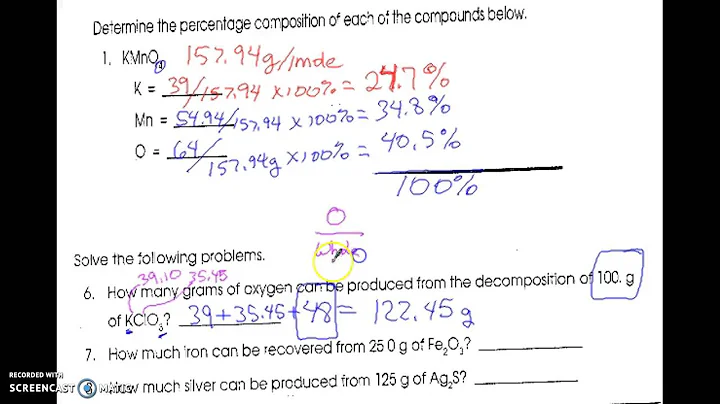 Determine the percentage composition of each of the compounds below.
1. KMnO4 157.94g/mole
K = 39/157.94 ×100% = 24.7%
Mn = 54.94/157.94 ×100% = 34.8%
O = 64/157.94g ×100% = 40.5%
100%
O
Solve the following problems.
39.10 35.45
6. How many grams of oxygen can be produced from the decomposition of 100. g
of KClO3? 39+35.45+48 = 122.45g
7. How much iron can be recovered from 25.0 g of Fe2O3?
How much silver can be produced from 125 g of Ag2S?
RECORDED WITH
SCREENCAST MATIC